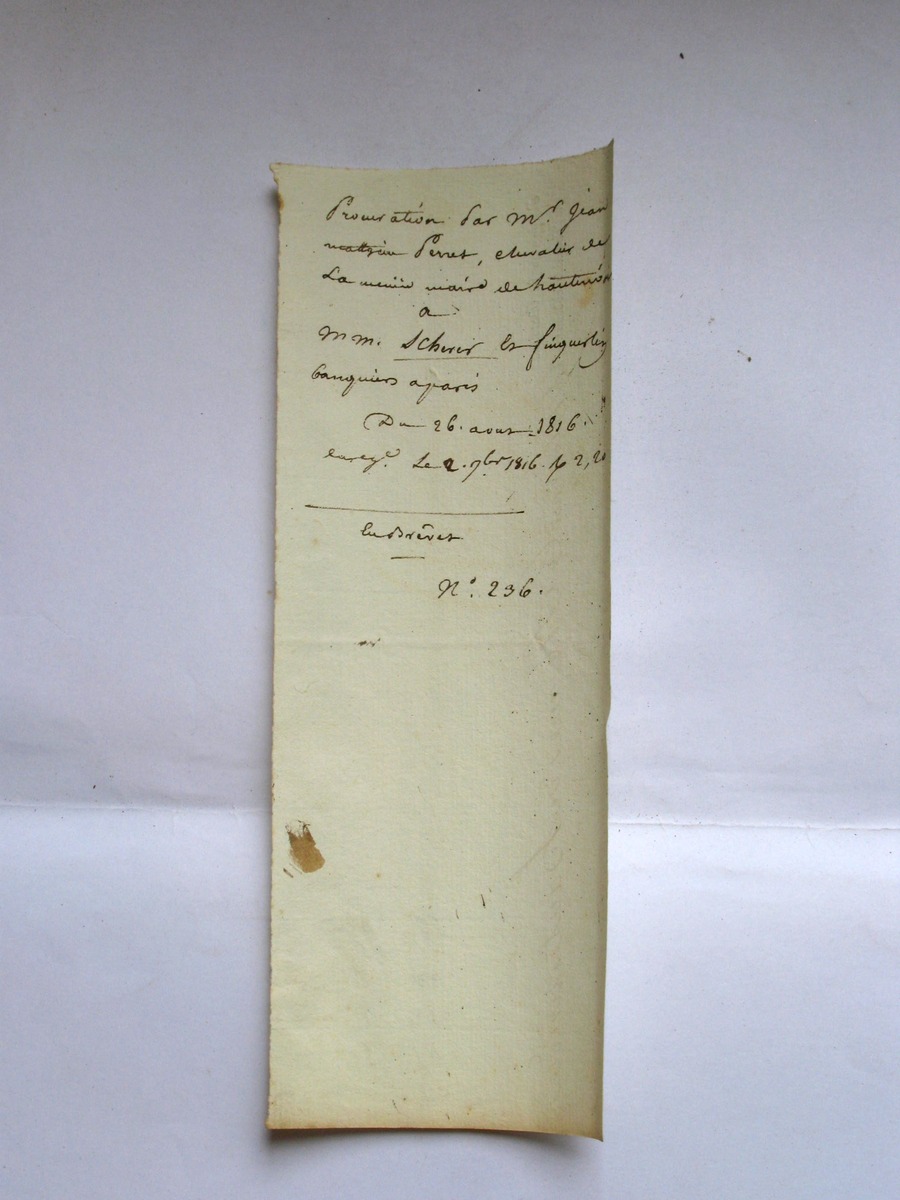 Procuration par Mr. Jean
Perret, chevalier de
La maire de hauterive
a
MM. Scherer et finguerlin
banquiers a paris
Du 26. aout 1816.
enreg.é Le 2. 7bre 1816. f 2, 20
En Brêvet
N.o 236.